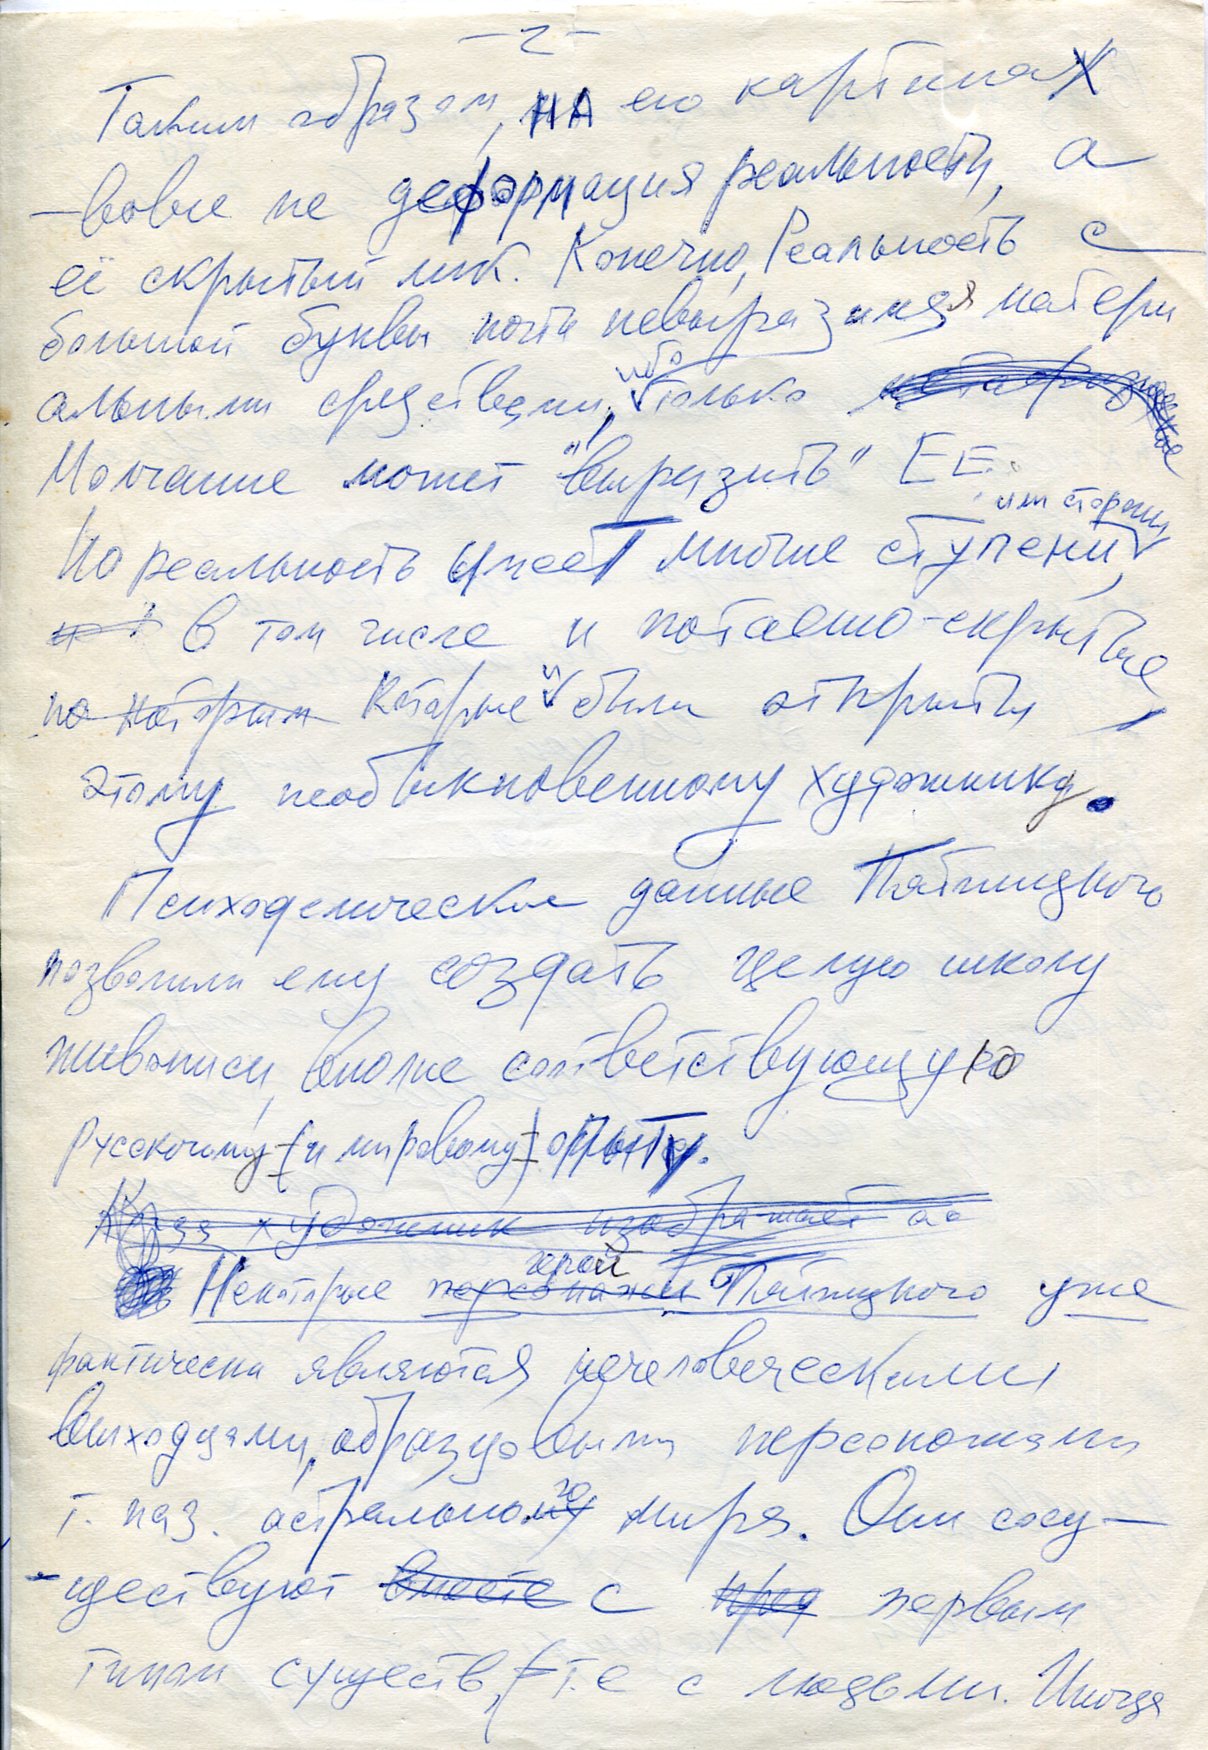 – 2 –
Таким образом, на его картинах
– вовсе не деформация реальности, а
её скрытый лик. Конечно, Реальность с
большой буквы почти невыразимая матери
альными средствами, ибо только
Молчание может "выразить" ЕЕ.
Но реальность имеет многие ступени, или стороны
в том числе и потаенно-скрытые,
по которым которые и были открыты
этому необыкновенному художнику.
Психоделические данные Пятницкого
позволили ему создать целую школу
живописи, вполне соответствующую
русскому (и мировому) опыту.
Когда художник изображает
Некоторые персонажи герои Пятницкого уже
фактически являются нечеловеческими
выходцами, образцовыми персонажами
т. наз. астрального мира. Они сосу–
–ществуют вместе с первым
типом существ, т.е с людьми. Иногда